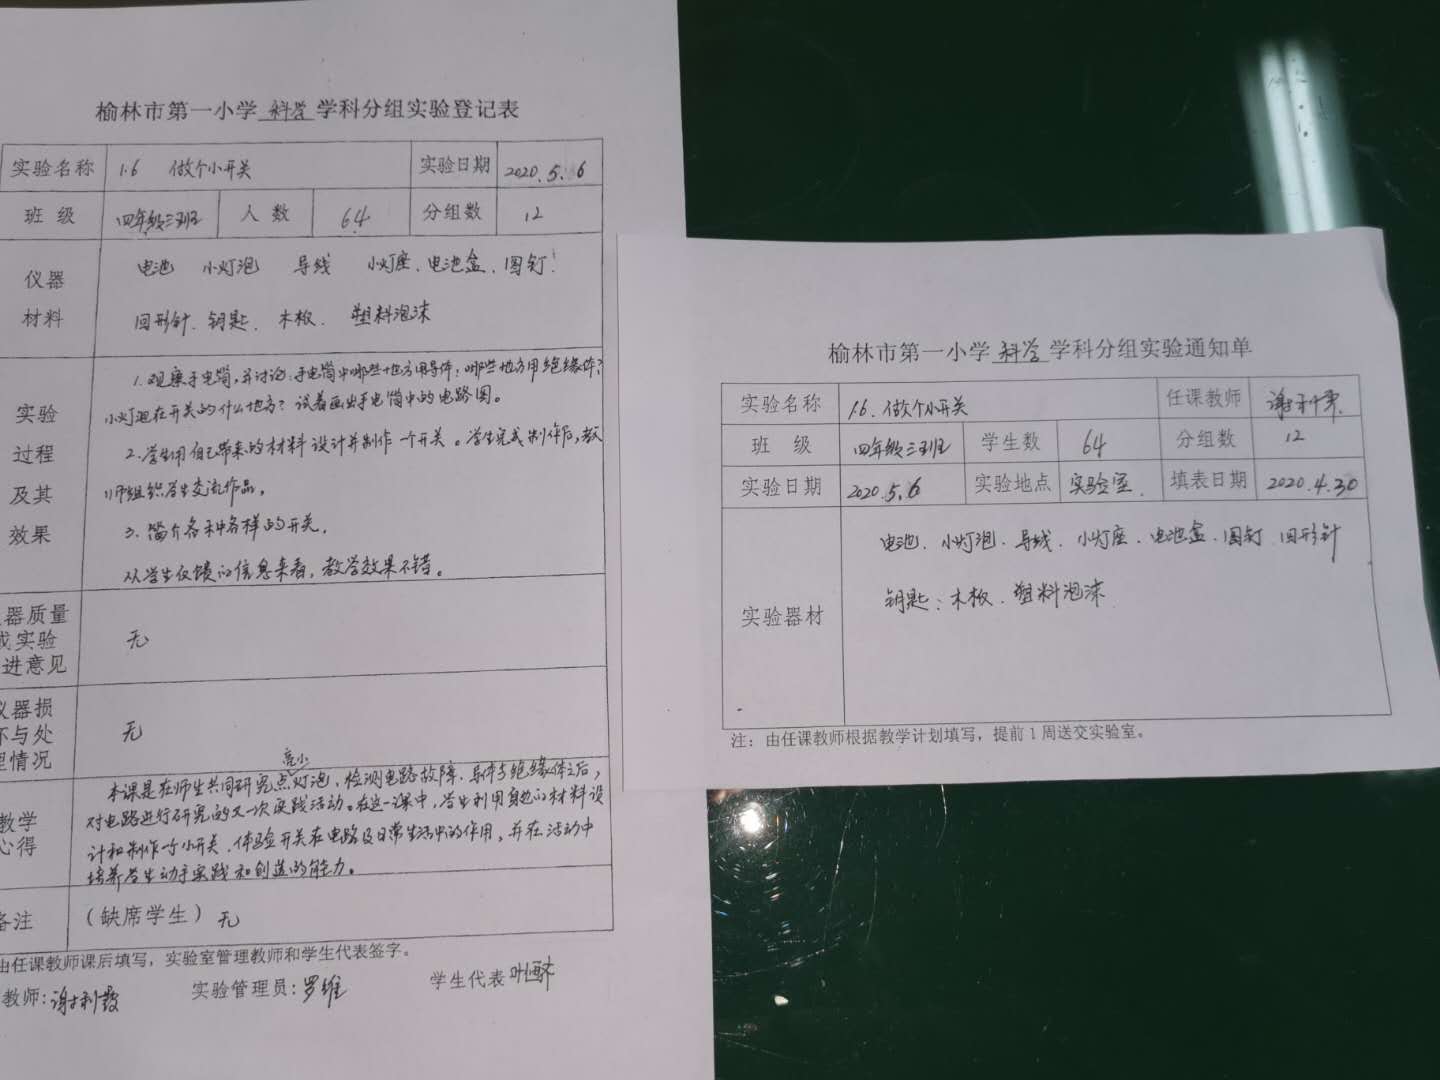 榆林市第一小学 科学 学科分组实验登记表
实验名称 1.6 做个小开关 实验日期 2020.5.6
班 级 四年级三班 人 数 64 分组数 12
仪器 电池 小灯泡 导线 小灯座、电池盒、图钉
材料 回形针、钥匙、木板、塑料泡沫
1.观察手电筒,并讨论:手电筒中哪些地方用导体?哪些地方用绝缘体?
实验 小灯泡在开关的什么地方?试着画出手电筒中的电路图。
过程 2.学生用自己带来的材料设计并制作一个开关。学生完成制作后,教
及其 师组织学生交流作品。
效果 3.简介各种各样的开关。
从学生反馈的信息来看,教学效果不错。
器质量
或实验 无
进意见
仪器损
坏与处 无
理情况
本课是在师生共同研究点亮小灯泡、检测电路故障、导体与绝缘体之后,
教学 对电路进行研究的又一次实践活动。在这一课中,学生利用身边的材料设
心得 计和制作一个小开关,体验开关在电路及日常生活中的作用,并在活动中
培养学生动手实践和创造的能力。
备注 (缺席学生) 无
由任课教师课后填写,实验室管理教师和学生代表签字。
教师: 实验管理员:罗维 学生代表
榆林市第一小学 科学 学科分组实验通知单
实验名称 1.6、做个小开关 任课教师
班 级 四年级三班 学生数 64 分组数 12
实验日期 2020.5.6 实验地点 实验室. 填表日期 2020.4.30
电池、小灯泡、导线、小灯座、电池盒、图钉、回形针
实验器材 钥匙、木板、塑料泡沫
注:由任课教师根据教学计划填写,提前1周送交实验室。